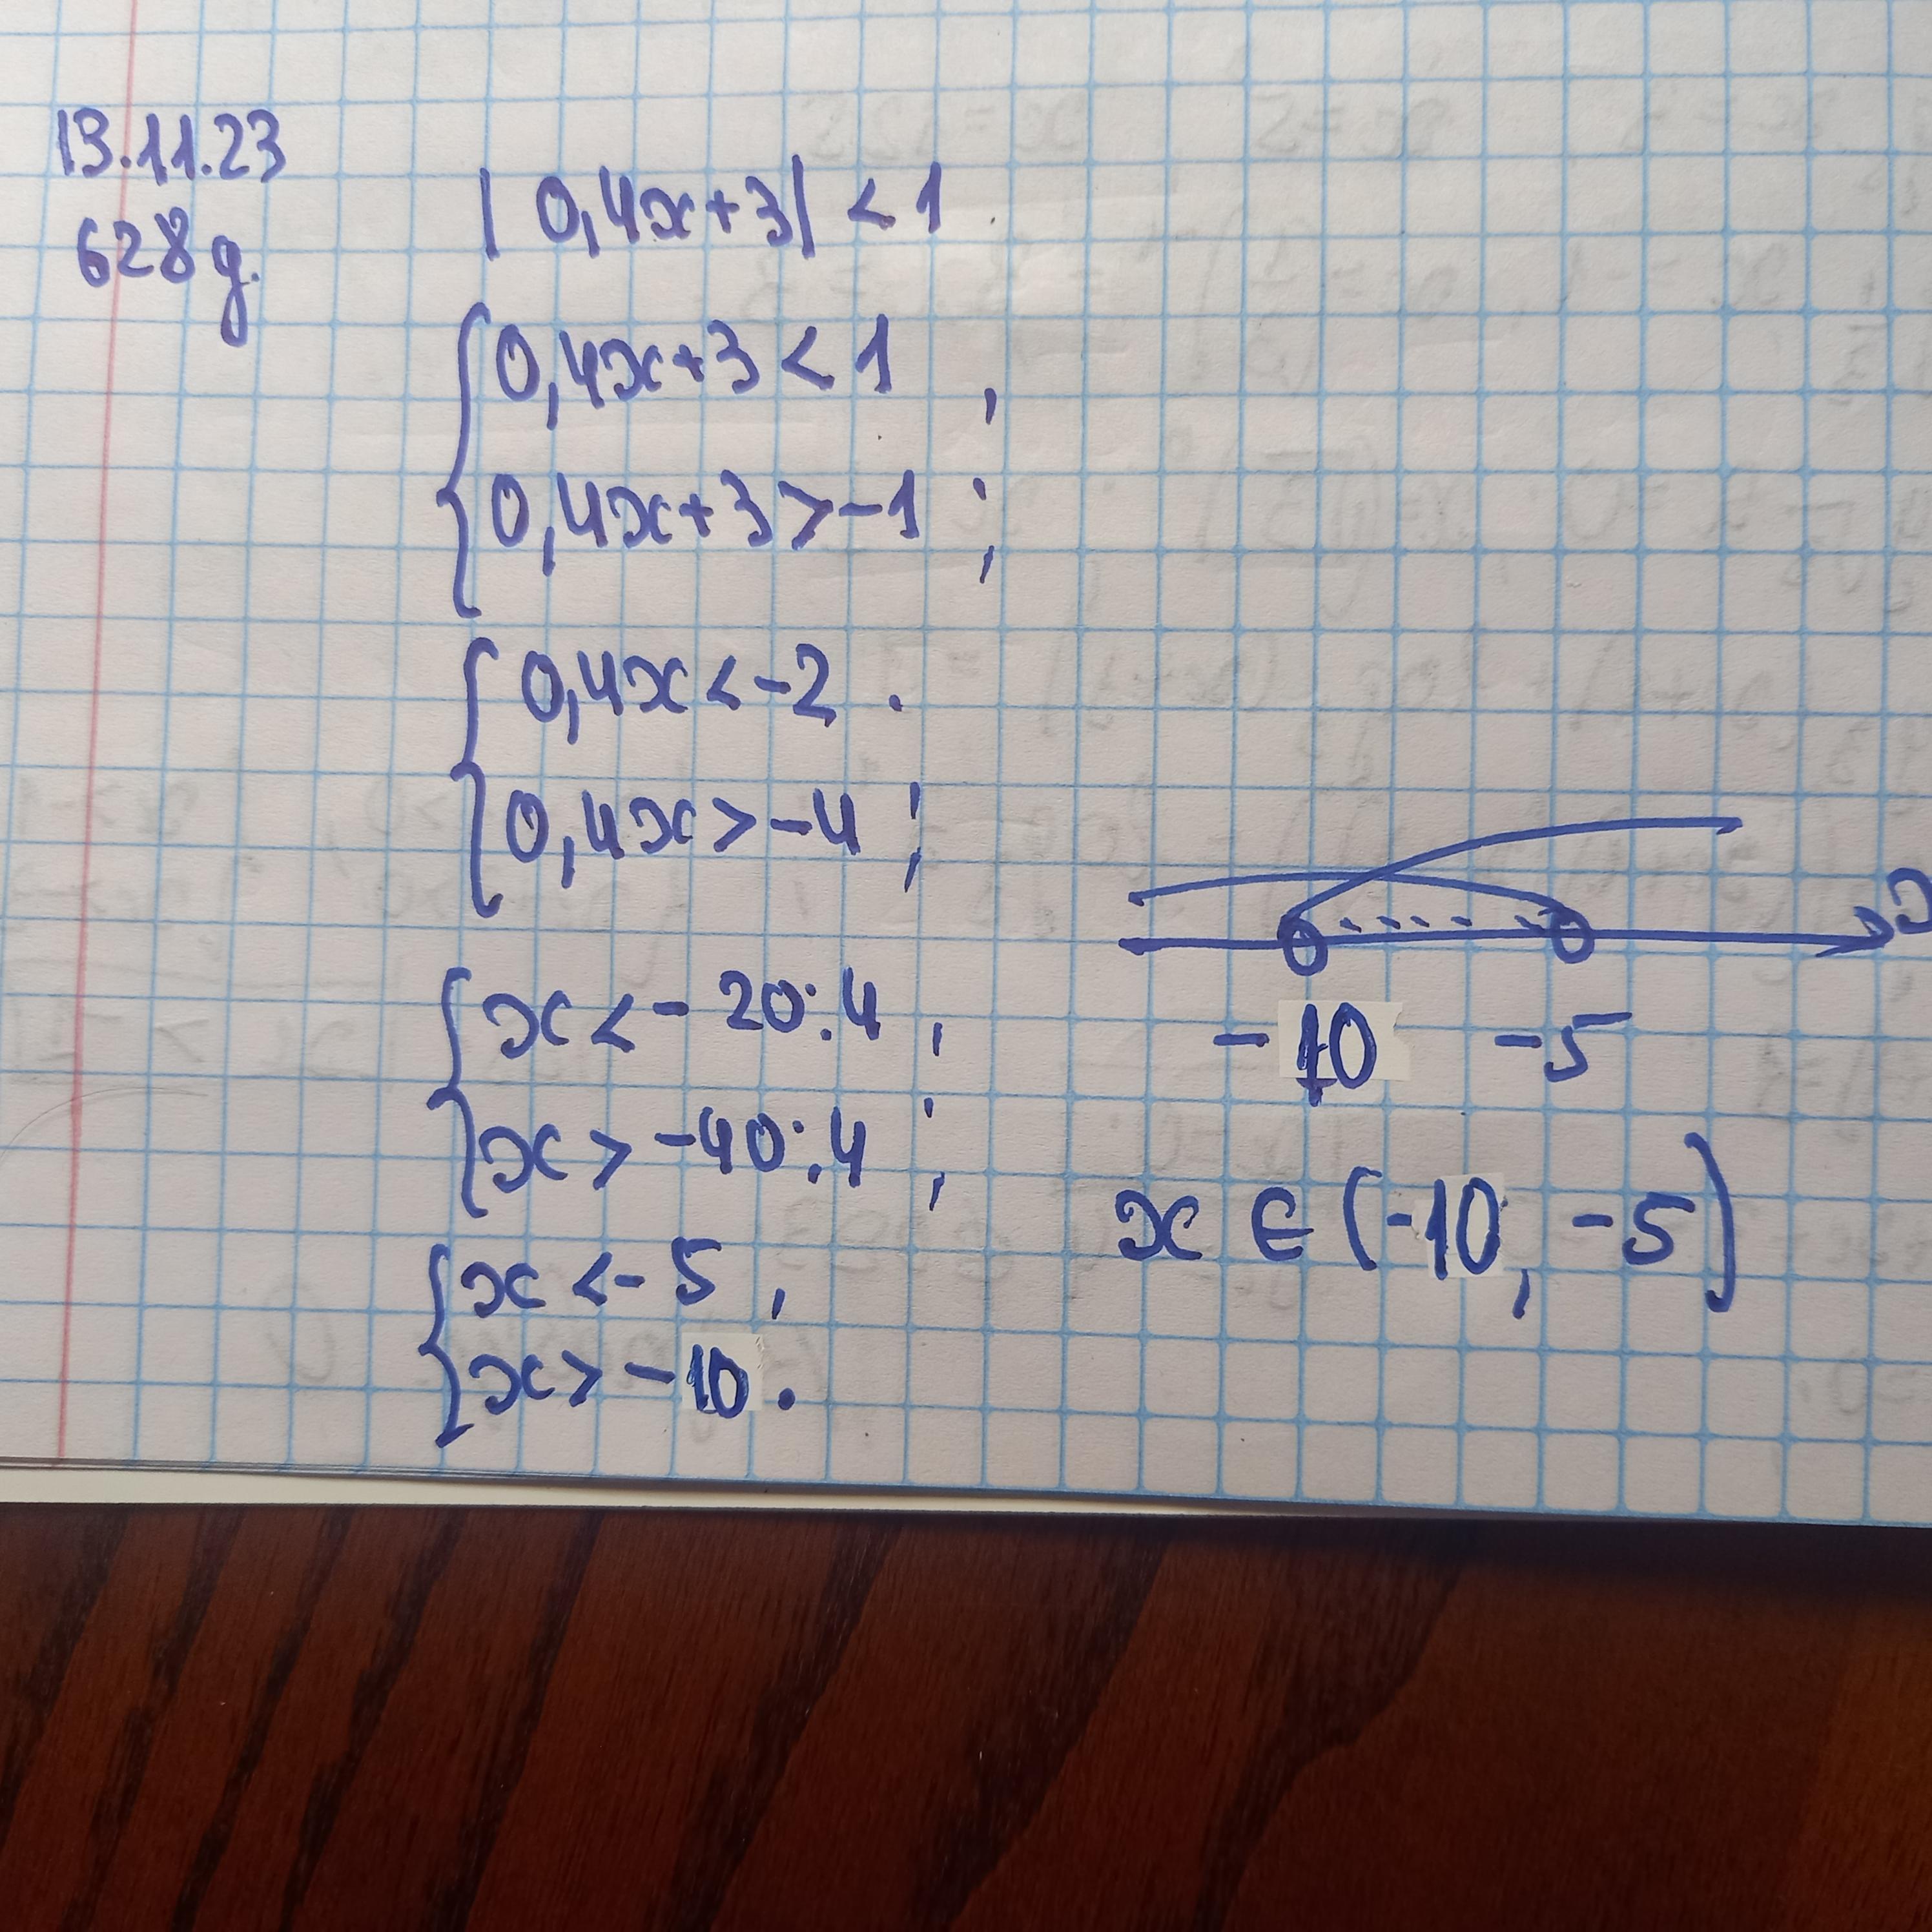 13.11.23
628 g.
| 0,4x+3| < 1
0,4x+3 < 1 ,
0,4x+3 > -1 ;
0,4x < -2 .
0,4x > -4 ;
x < - 20:4 ,
x > -40:4 ;
x < - 5 ,
x > - 10 .
-10 -5
x ∈ (-10, -5)